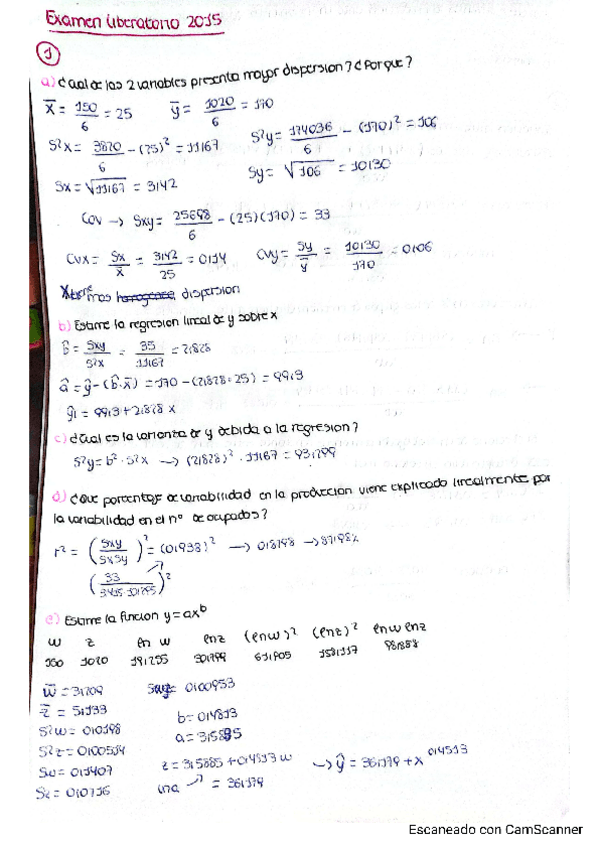 Examen liberatorio 2015
1
a) ¿Cual de las 2 variables presenta mayor dispersion? ¿Porque?
x̄ = 150/6 = 25 ȳ = 1020/6 = 170
S²x = 3820/6 − (25)² = 11'67 S²y = 174036/6 − (170)² = 106
Sx = √11'67 = 3'42 Sy = √106 = 10'30
Cov → Sxy = 25698/6 − (25)(170) = 33
CVx = Sx/x̄ = 3'42/25 = 0'14 CVy = Sy/ȳ = 10'30/170 = 0'06
X tiene mas dispersion
b) Estime la regresion lineal de y sobre x
b̂ = Sxy/S²x = 35/11'67 = 2'828
â = ȳ − (b̂·x̄) = 170 − (2'828·25) = 99'3
ŷi = 99'3 + 2'828 x
c) ¿Cual es la varianza de y debida a la regresion?
S²y = b²·S²x → (2'828)²·11'67 = 93'299
d) ¿Que porcentaje de variabilidad en la produccion viene explicado linealmente por
la variabilidad en el nº de ocupados?
r² = (Sxy/SxSy)² = (0'938)² → 0'8798 → 87'98%
(33/3'415·10'295)²
e) Estime la funcion y = ax^b
w z ln w lnz (lnw)² (lnz)² lnw lnz
150 1020 19'255 30'799 61'905 158'117 98'888
w̄ = 3'209 0'00953
z̄ = 5'133
S²w = 0'0198 b = 0'4813
S²z = 0'00514 a = 3'5885
Sw = 0'1407 z = 3'5885 + 0'4813 w → ŷ = 36'179 + x^0'4813
Sz = 0'0716 lna → = 36'179
Escaneado con CamScanner